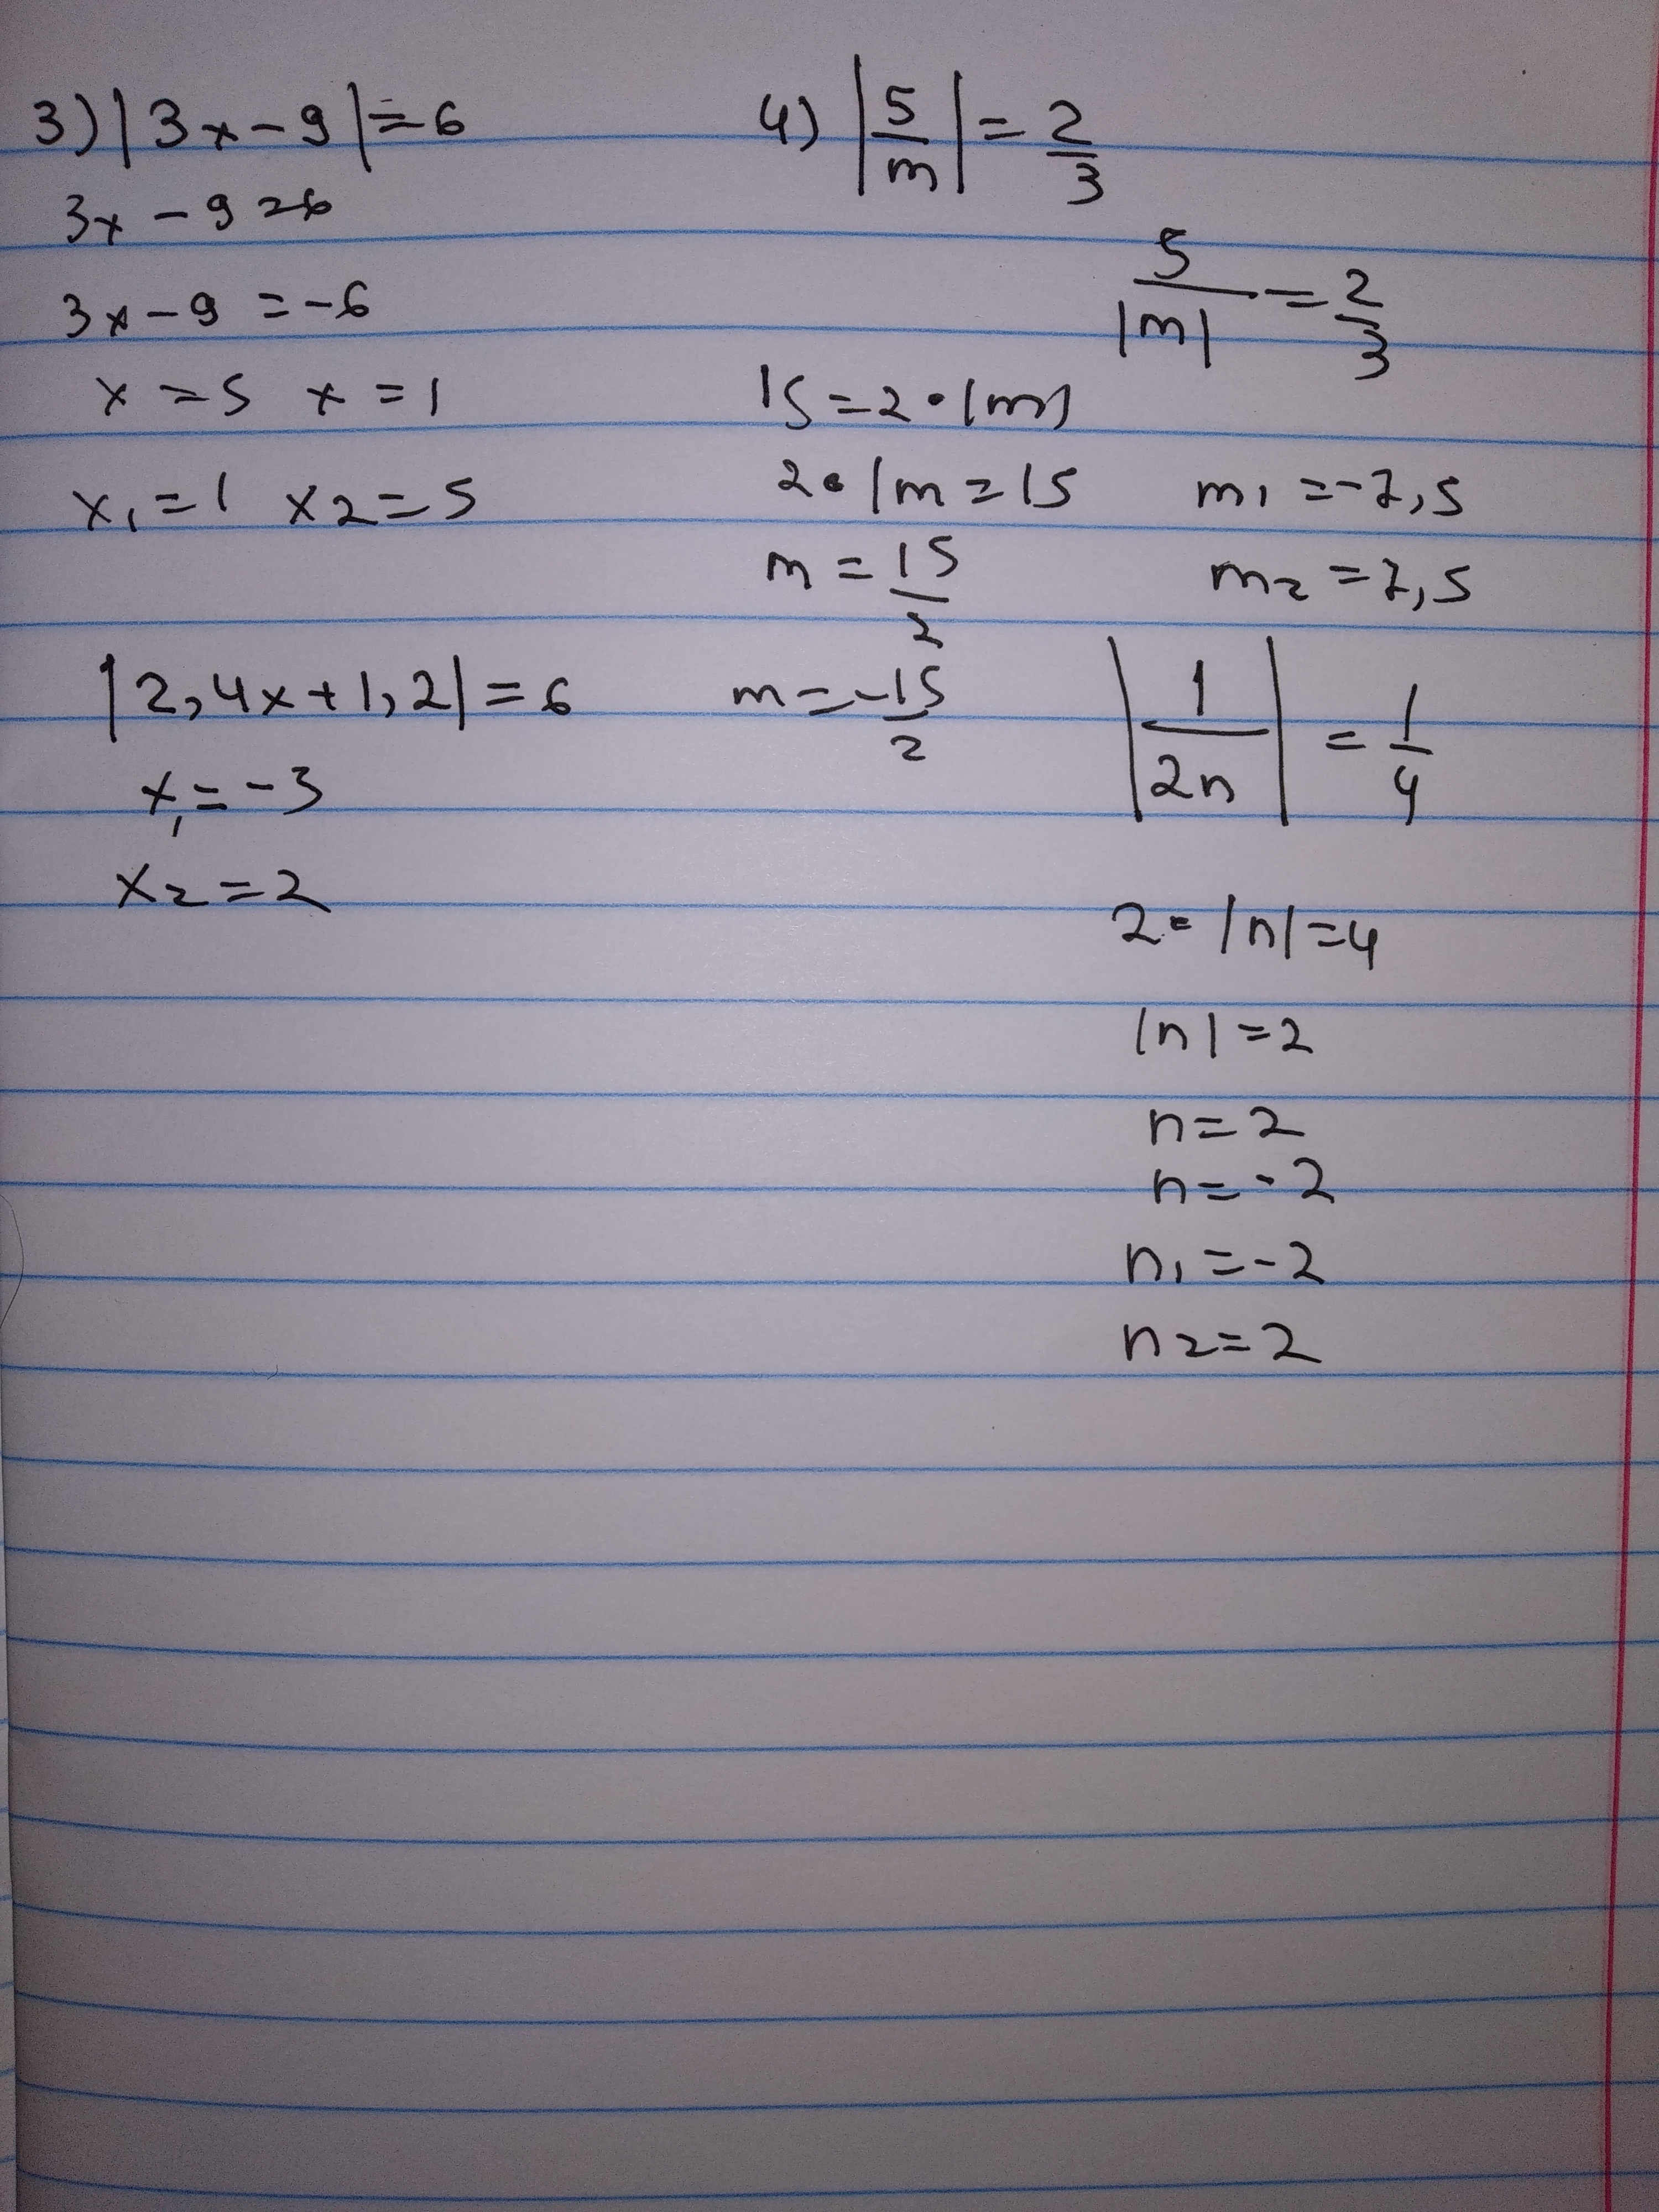 3) |3x-9|=6
3x-9=6
3x-9=-6
x=5 x=1
x₁=1 x₂=5
|2,4x+1,2|=6
x₁=-3
x₂=2
4) |5/m|=2/3
5/|m|=2/3
15=2•|m|
2•|m=15
m=15/2
m=-15/2
m₁=-7,5
m₂=7,5
|1/2n|=1/4
2•|n|=4
|n|=2
n=2
n=-2
n₁=-2
n₂=2